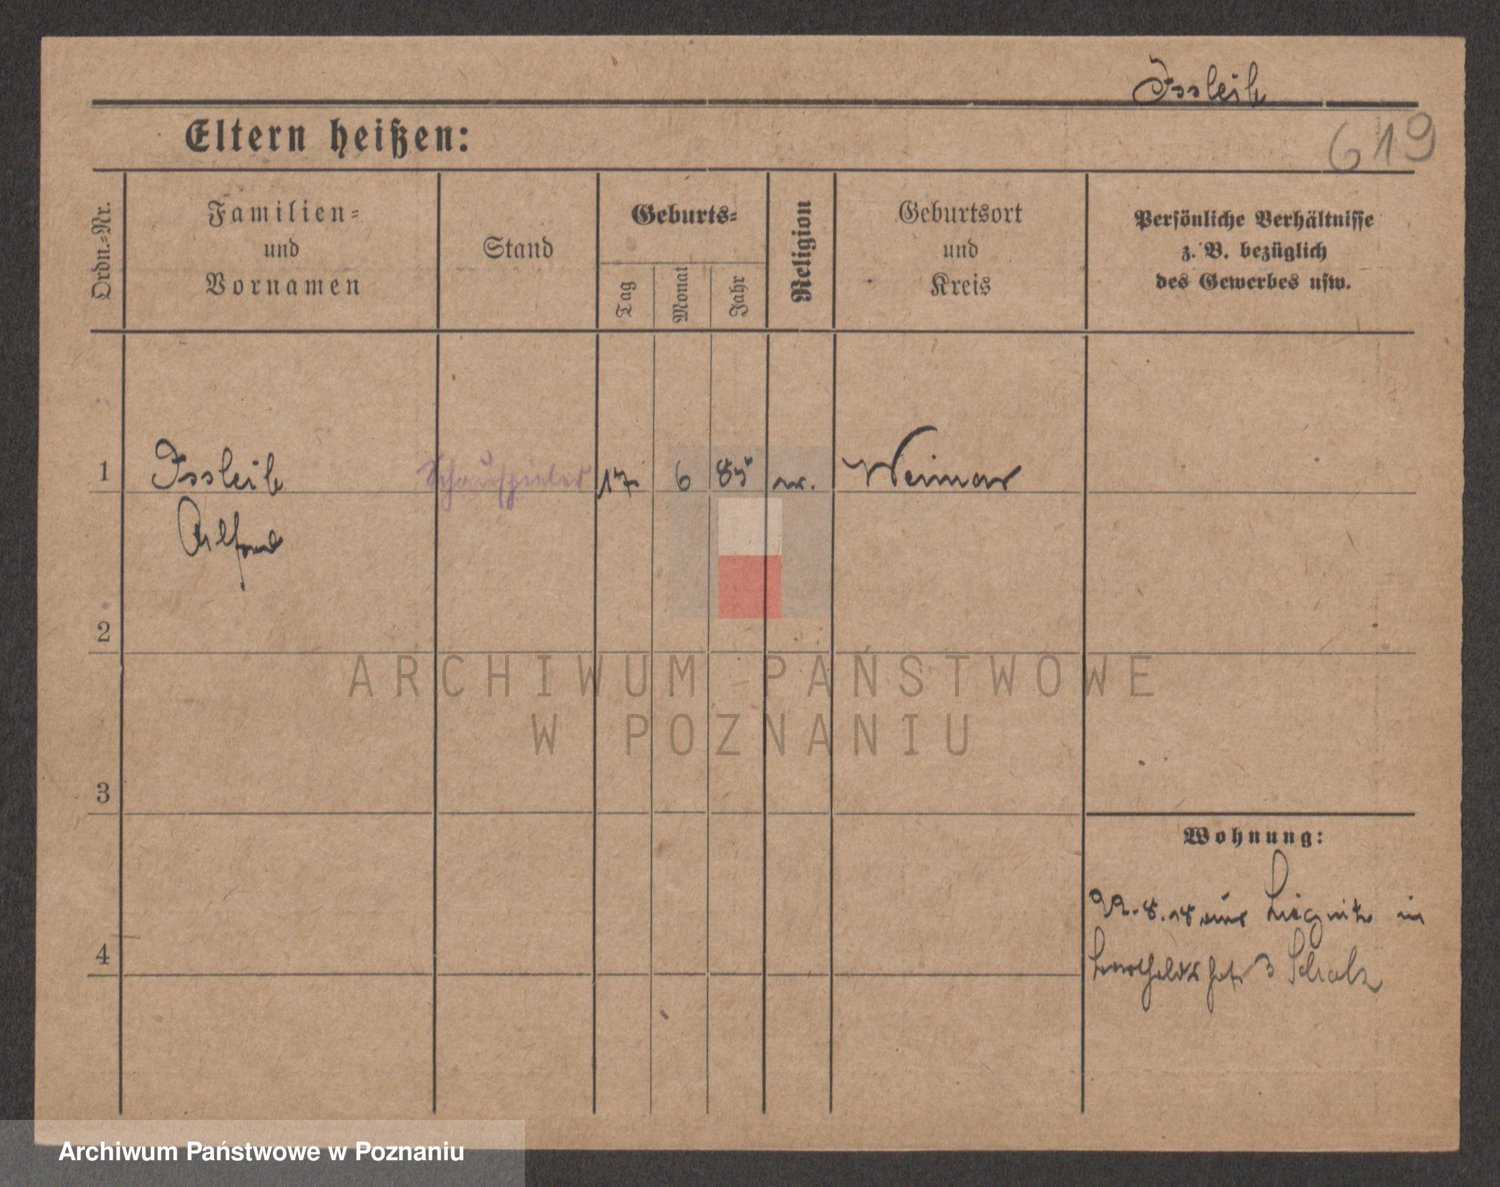 Issleib
Eltern heißen:
619
Ordn.-Nr.
Familien-
und
Vornamen
Stand
Geburts-
Tag
Monat
Jahr
Religion
Geburtsort
und
Kreis
Persönliche Verhältnisse
z. B. bezüglich
des Gewerbes usw.
1
Issleib
Schauspieler
17
6
85
Weimar
Alfred
2
ARCHIWUM PAŃSTWOWE
W POZNANIU
3
Wohnung:
22.8.18 aus Liegnitz in
3 Scholz
4
Archiwum Państwowe w Poznaniu